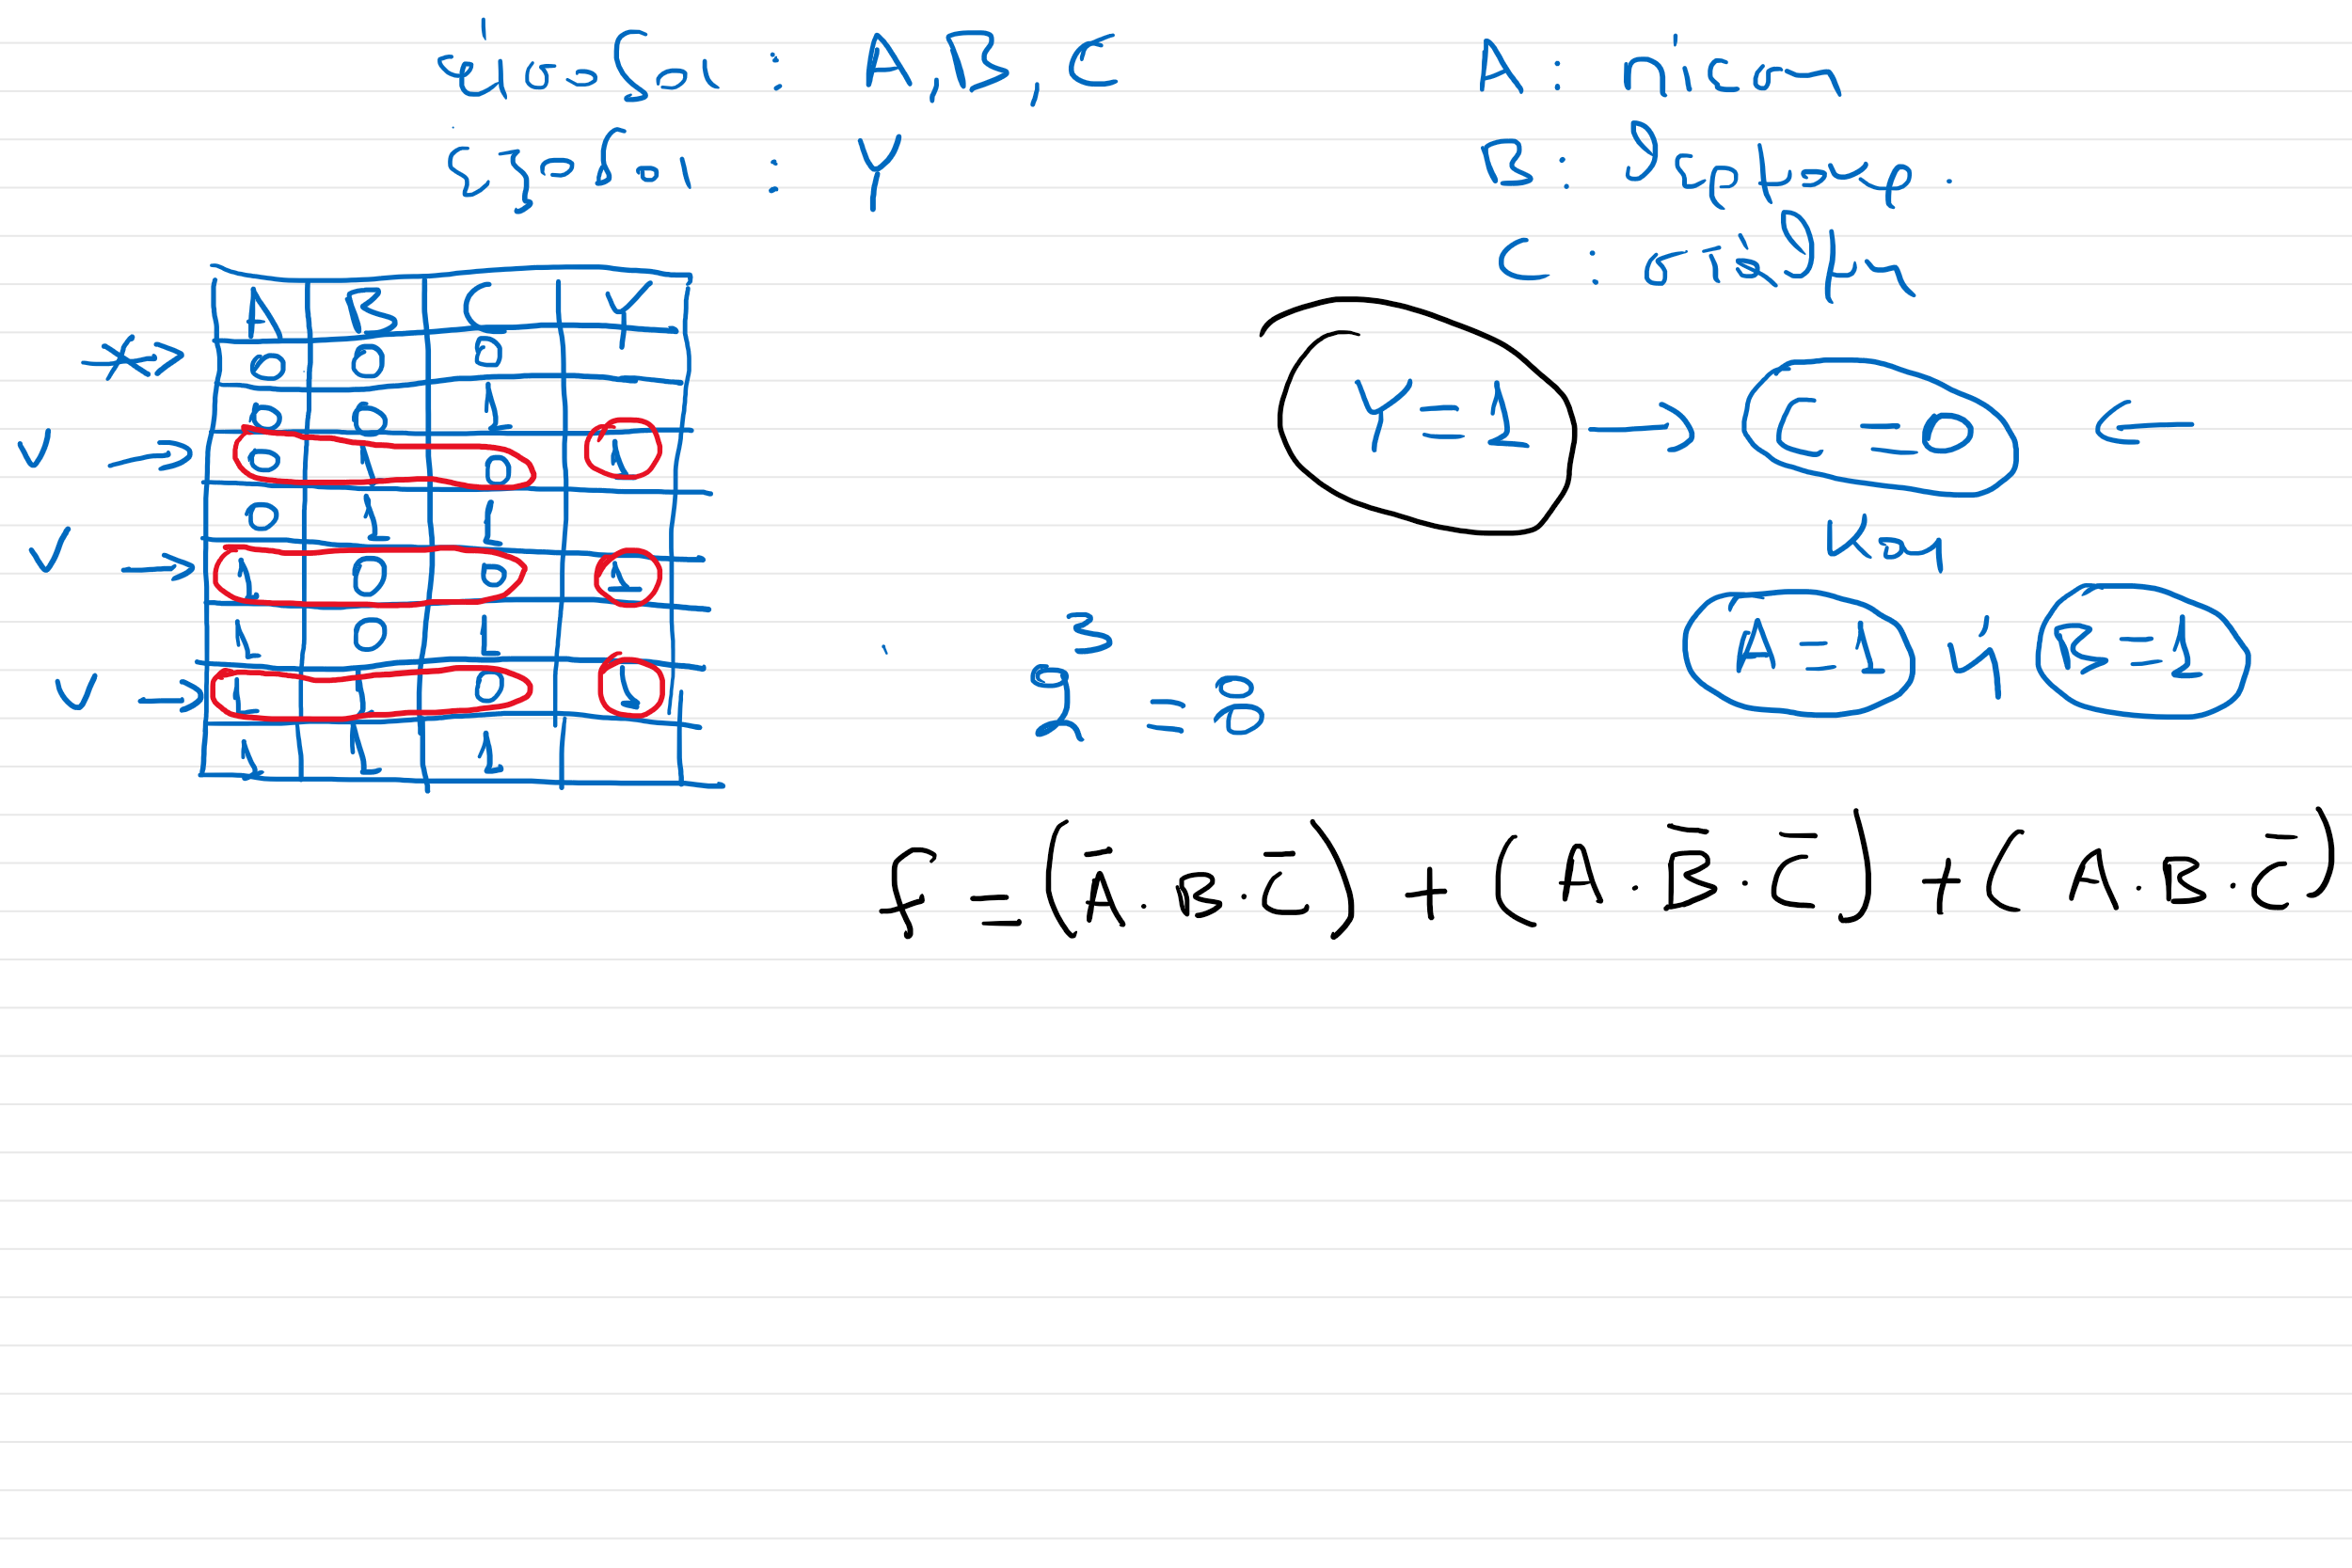 είσοδοι : A, B, C
έξοδοι : Y
A : πίεση
B : θερμοκρ.
C : στάθμη
A B C Y
0 0 0
0 0 1
0 1 0 1
0 1 1
1 0 0 1
1 0 1
1 1 0 1
1 1 1
Y = 1 → C = 0 ←
και
A = 1 ή B = 1
2³ = 8
f = (A̅ · B · C̅) + (A · B̅ · C̅) + (A · B · C̅)